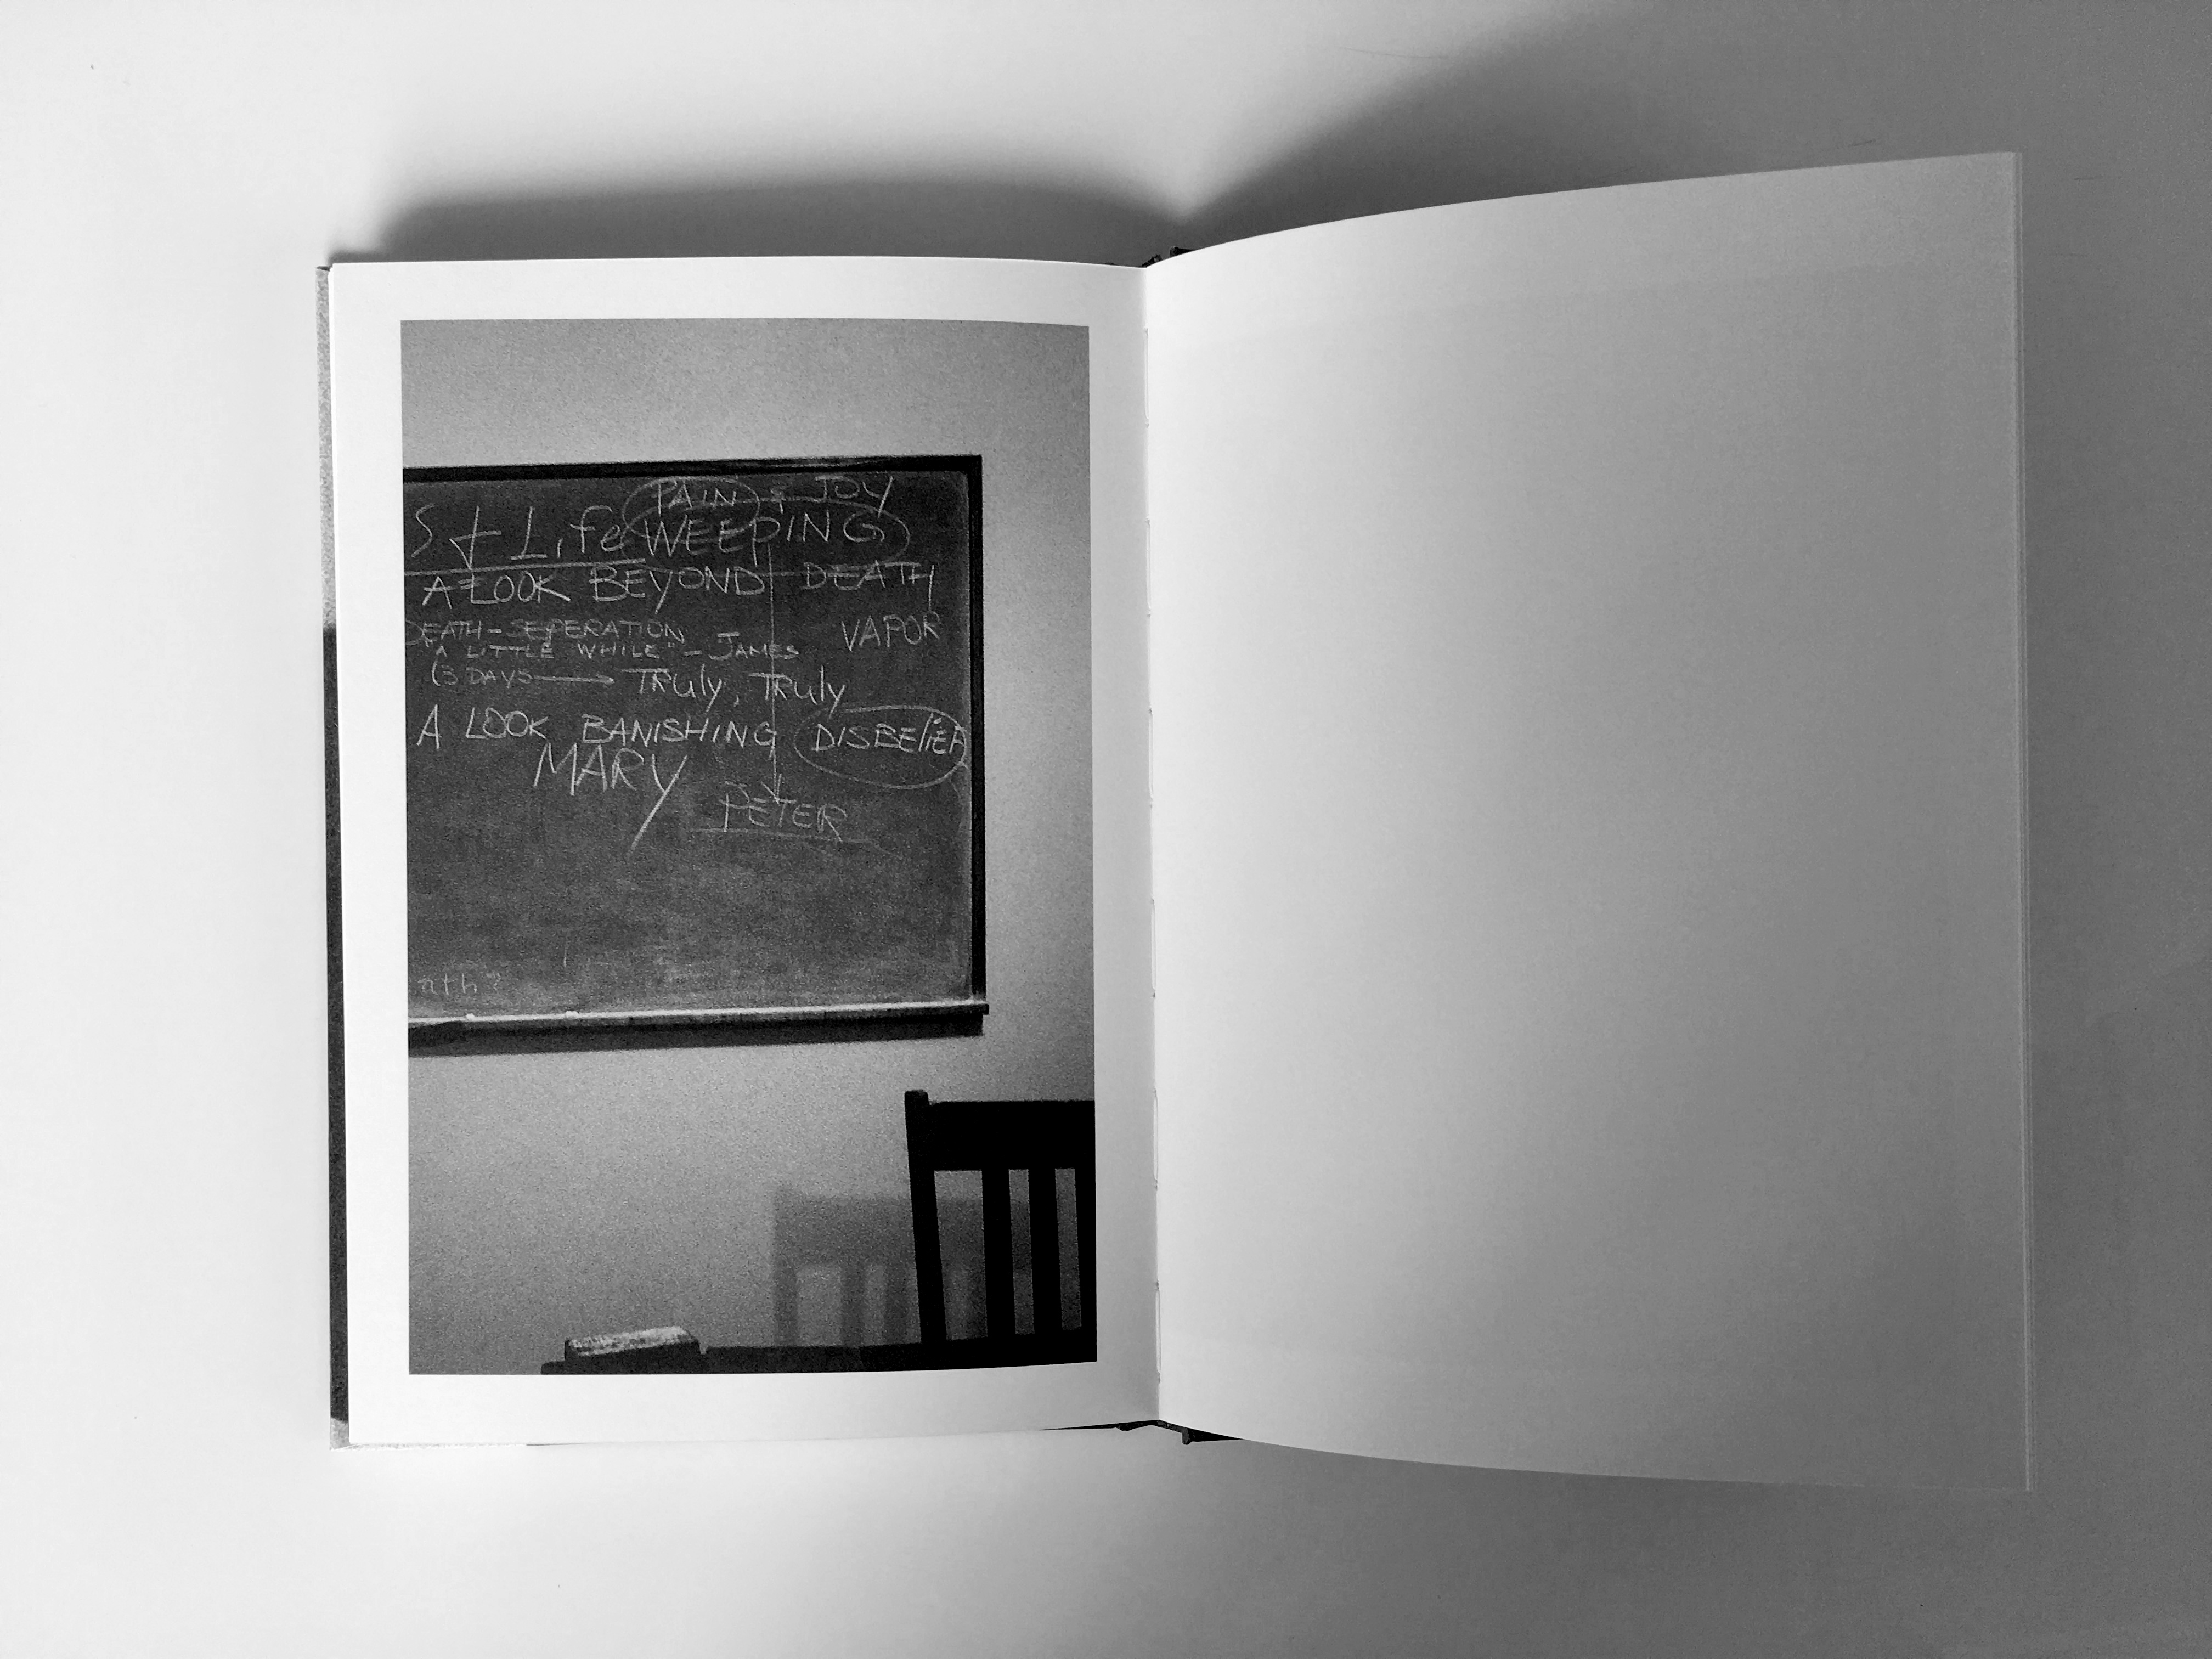 PAIN & JOY
S + Life WEEPING
A LOOK BEYOND DEATH
DEATH - SEPERATION
"A LITTLE WHILE" - JAMES VAPOR
(3 DAYS → TRuly, TRuly
A LOOK BANISHING DISBELIEF
MARY
PETER
ath?